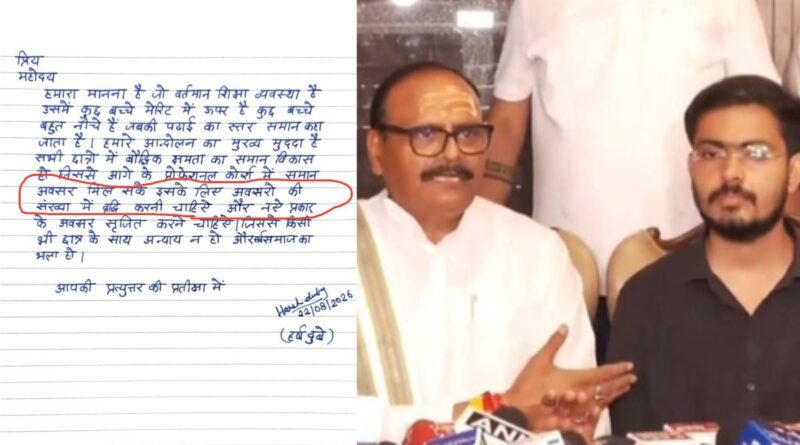 प्रिय
महोदय
हमारा मानना है जो वर्तमान शिक्षा व्यवस्था है
उसमें कुछ बच्चे मेरिट में ऊपर है कुछ बच्चे
बहुत नीचे हैं जबकी पढाई का स्तर समान कहा
जाता है। हमारे आन्दोलन का मुख्य मुददा है
सभी छात्रो में बौद्धिक क्षमता का समान विकास
हो जिससे आगे के प्रोफेशनल कोर्स में समान
अवसर मिल सके इसके लिए अवसरो की
संख्या में वृद्धि करनी चाहिसे और नसे प्रकार
के अवसर सृजित करने चाहिसे।जिससे किसी
भी छात्र के साथ अन्याय न हो और समाज का
भला हो।
आपकी प्रत्युत्तर की प्रतीक्षा में
Harsh dubey
22/08/2026
(हर्ष दुबे)
ANI